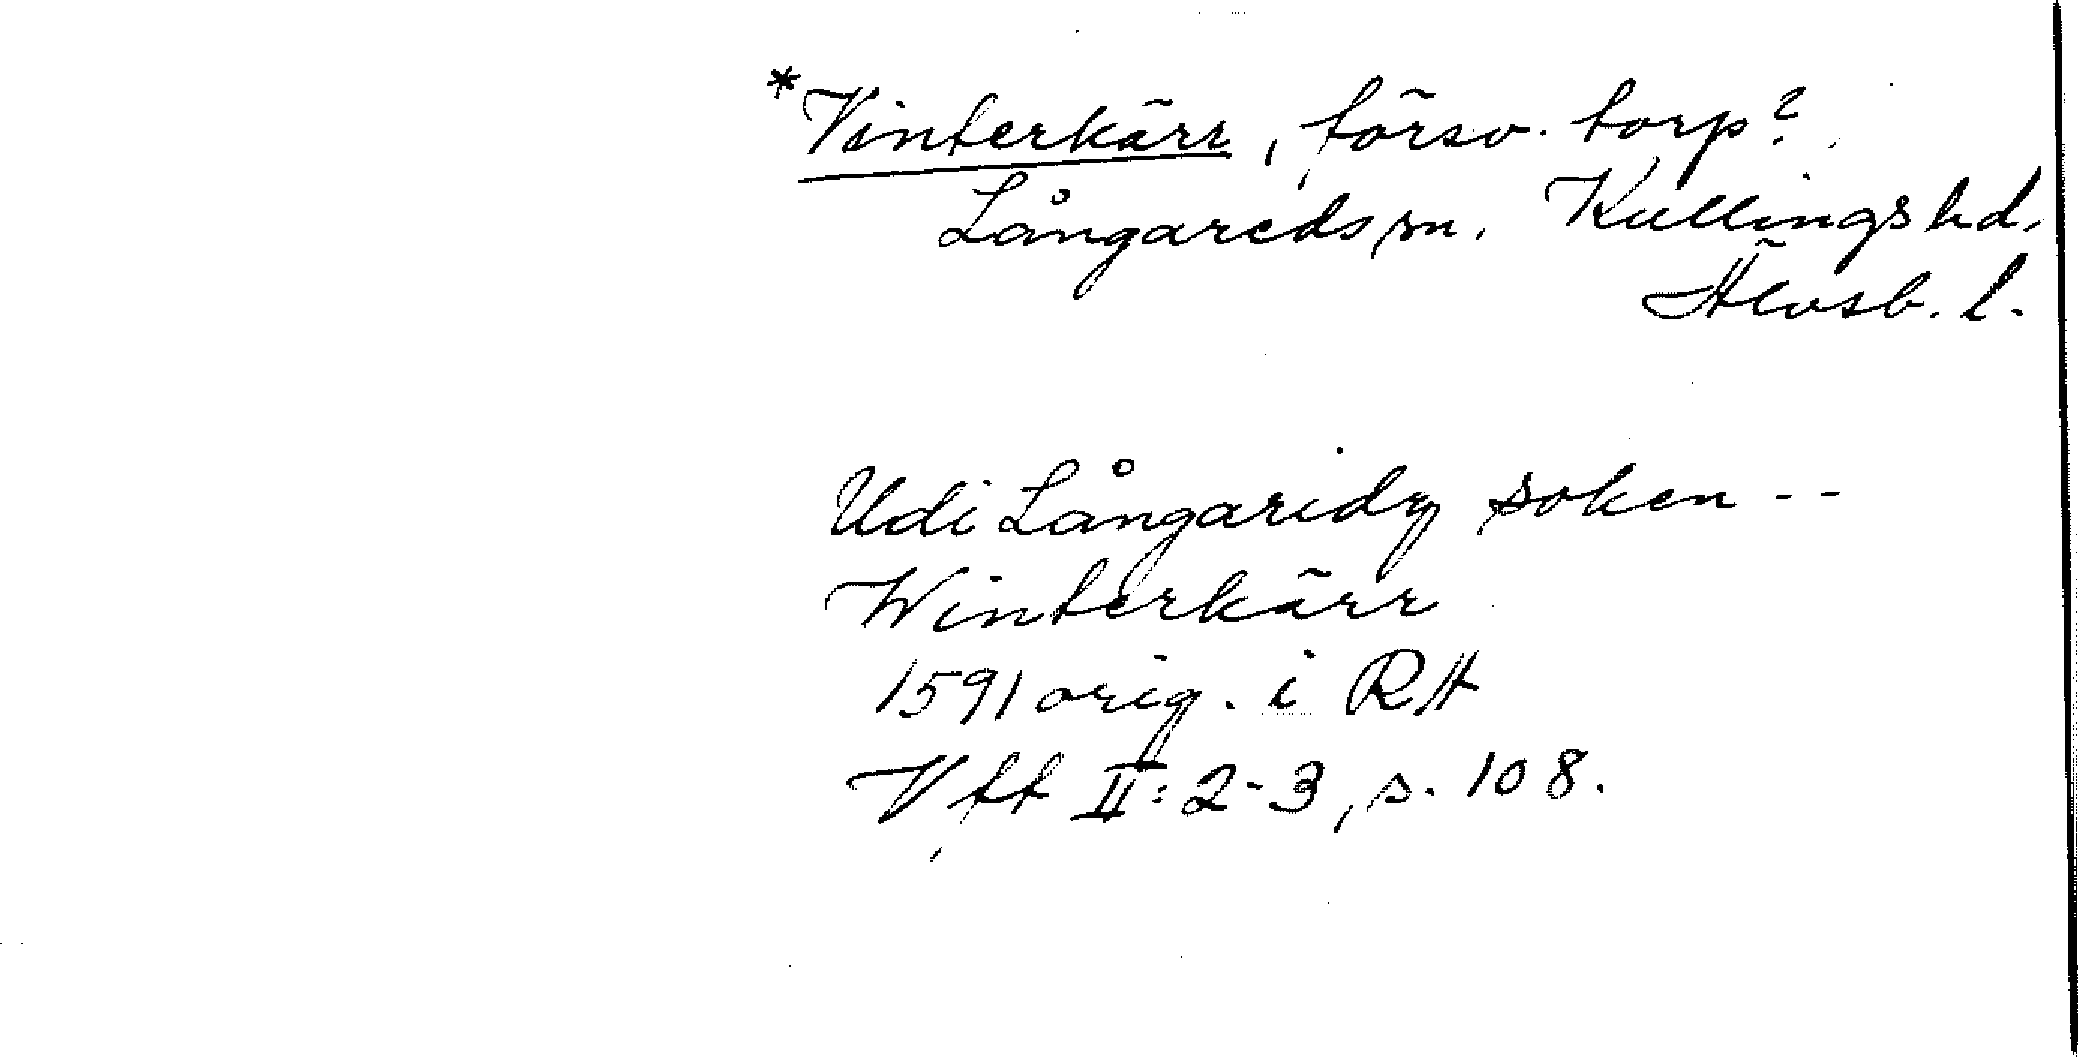 *Vinterkärr, försv. torp?
Långareds sn. Kullings hd.
Älvsb. l.
Udi Långaridz soken --
Winterkärr
1591 orig. i RA
Vft II: 2-3, s. 108.